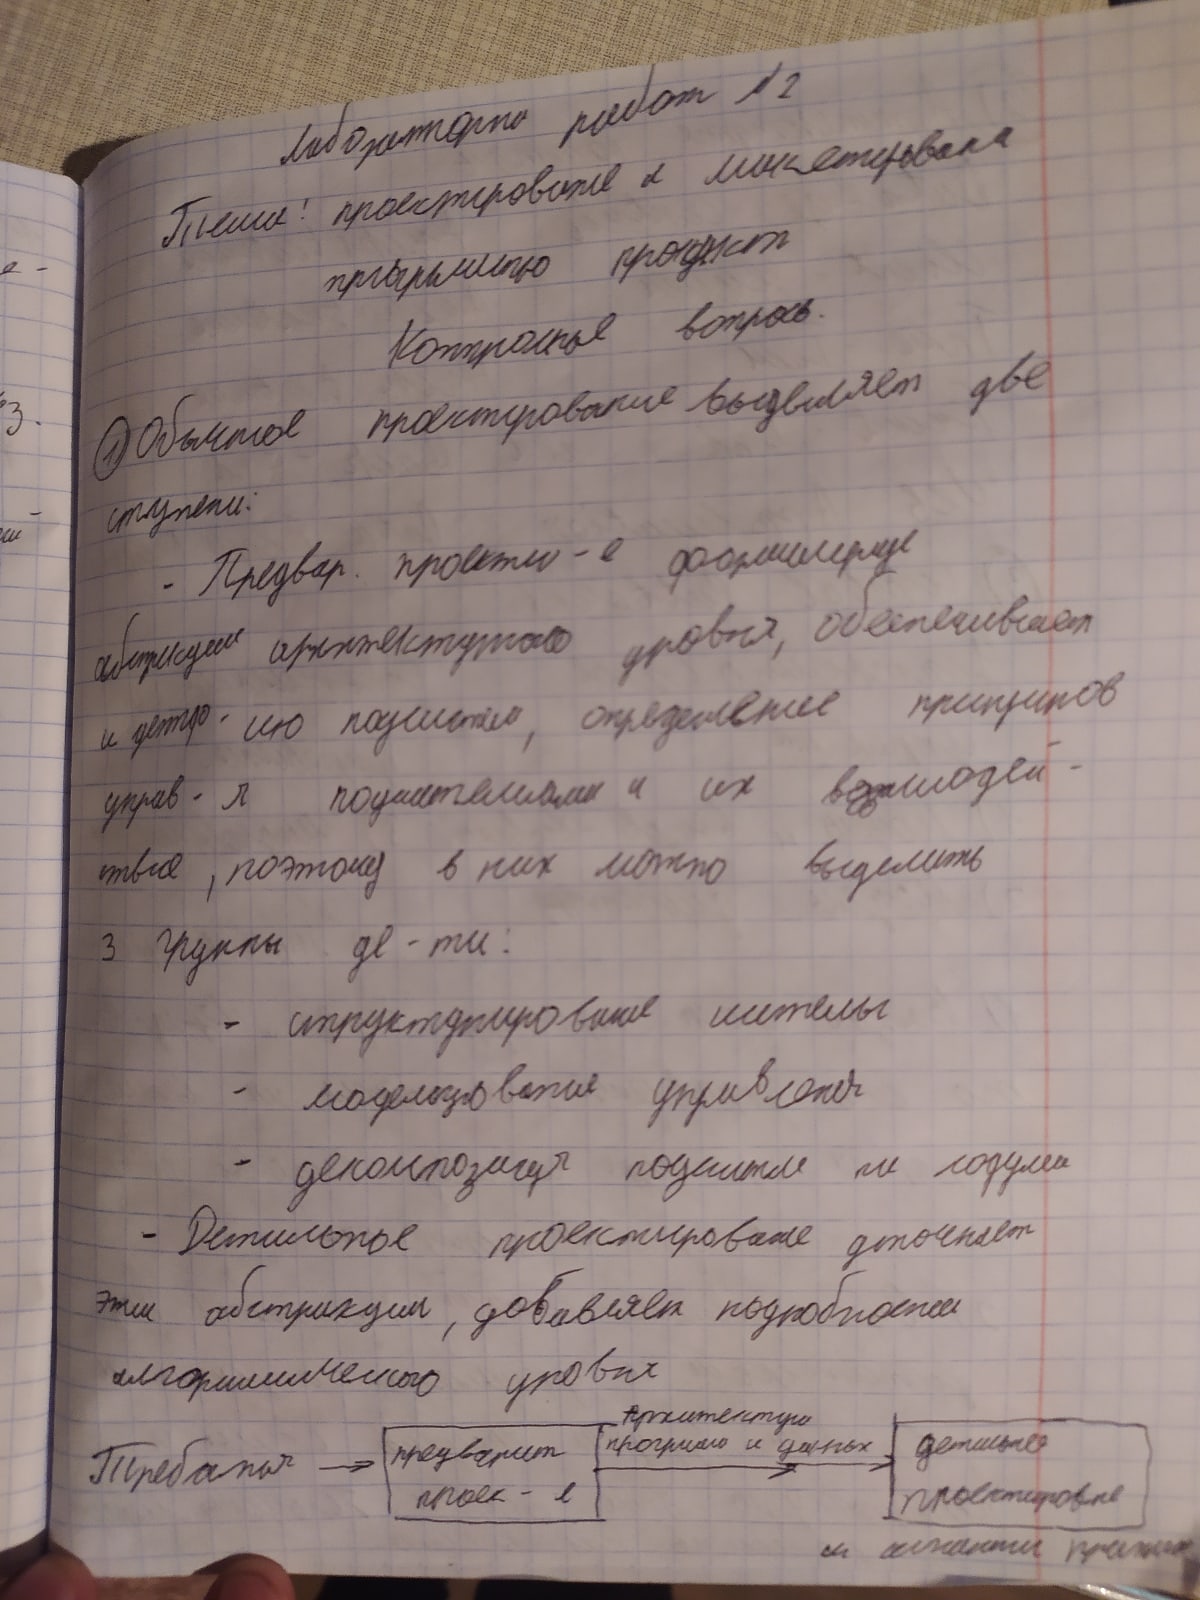 Лабораторна работ №2
Тема: проектирование и макетирована
програмного продукт
Контрольные вопросы.
① Обычное проектирование выделяет две
ступени:
- Предвар. проектно-е формирует
абстракции архитектурного уровня, обеспечивает
и детер-ию подсистем, определение принципов
управ-я подсистемами и их взаимодей-
твие, поэтому в них можно выделить
3 группы де-ти:
- структурирование системы
- моделирование управления
- декомпозиция подсистем на модули
- Детальное проектирование уточняет
эти абстракции, добавляет подробности
алгоритмического уровня
е-
з.
Требания → предварит
проек-е
Архитектура
програм и данных
детально
проектирование